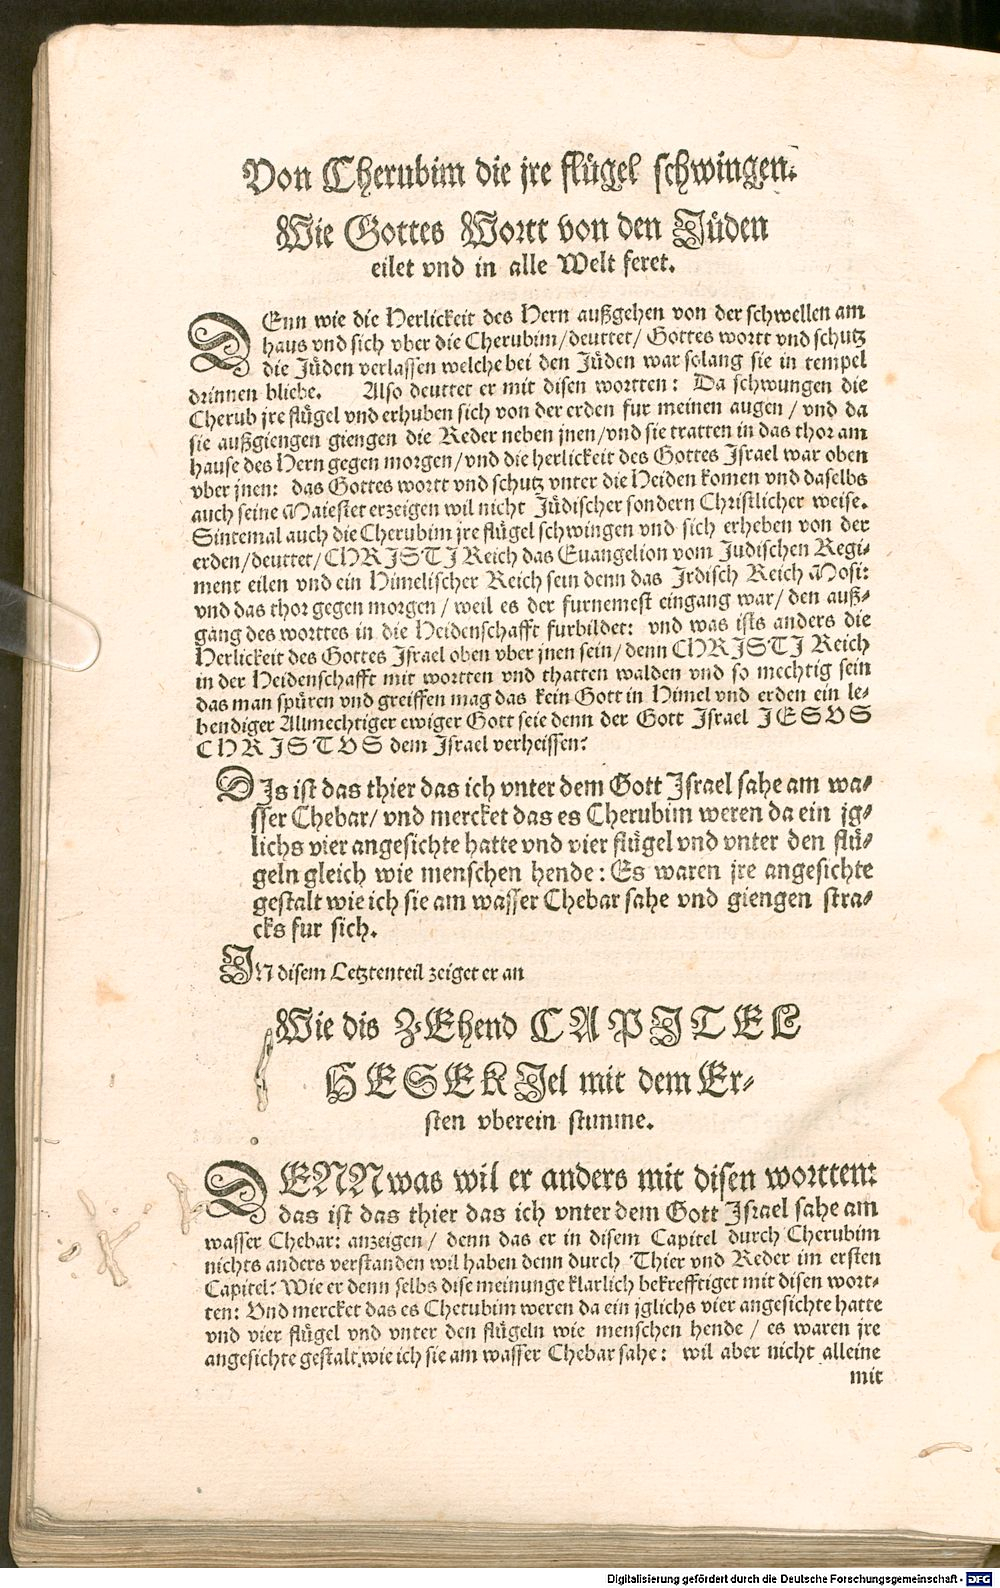 Von Cherubim die jre flügel schwingen.
Wie Gottes Wortt von den Jüden
eilet vnd in alle Welt feret.
DEnn wie die Herlickeit des Hern außgehen von der schwellen am
haus vnd sich vber die Cherubim/deuttet/ Gottes wortt vnd schutz
die Jüden verlassen welche bei den Jüden war solang sie in tempel
drinnen bliebe. Also deuttet er mit disen wortten: Da schwungen die
Cherub jre flügel vnd erhuben sich von der erden fur meinen augen / vnd da
sie außgiengen giengen die Reder neben jnen/vnd sie tratten in das thor am
hause des Hern gegen morgen/vnd die herlickeit des Gottes Israel war oben
vber jnen: das Gottes wortt vnd schutz vnter die Heiden komen vnd daselbs
auch seine Maiestet erzeigen wil nicht Jüdischer sondern Christlicher weise.
Sintemal auch die Cherubim jre flügel schwingen vnd sich erheben von der
erden/deuttet/CHRISTI Reich das Euangelion vom Judischen Regi-
ment eilen vnd ein Himelischer Reich sein denn das Irdisch Reich Mosi:
vnd das thor gegen morgen / weil es der furnemest eingang war/ den auß-
gang des worttes in die Heidenschafft furbildet: vnd was ists anders die
Herlickeit des Gottes Israel oben vber jnen sein/denn CHRISTI Reich
in der Heidenschafft mit wortten vnd thatten walden vnd so mechtig sein
das man spüren vnd greiffen mag das kein Gott in Himel vnd erden ein le-
bendiger Allmechtiger ewiger Gott seie denn der Gott Israel JESVS
CHRISTVS dem Israel verheissen:
DJs ist das thier das ich vnter dem Gott Israel sahe am wa-
sser Chebar/ vnd mercket das es Cherubim weren da ein jg-
lichs vier angesichte hatte vnd vier flügel vnd vnter den flü-
geln gleich wie menschen hende: Es waren jre angesichte
gestalt wie ich sie am wasser Chebar sahe vnd giengen stra-
cks fur sich.
IN disem Letztenteil zeiget er an
Wie dis ZEhend CAPITEL
HESEKJel mit dem Er-
sten vberein stimme.
DENN was wil er anders mit disen wortten:
das ist das thier das ich vnter dem Gott Israel sahe am
wasser Chebar: anzeigen / denn das er in disem Capitel durch Cherubim
nichts anders verstanden wil haben denn durch Thier vnd Reder im ersten
Capitel: Wie er denn selbs dise meinunge klarlich bekrefftiget mit disen wort-
ten: Vnd mercket das es Cherubim weren da ein jglichs vier angesichte hatte
vnd vier flügel vnd vnter den flügeln wie menschen hende / es waren jre
angesichte gestalt wie ich sie am wasser Chebar sahe: wil aber nicht alleine
mit
Digitalisierung gefördert durch die Deutsche Forschungsgemeinschaft - DFG